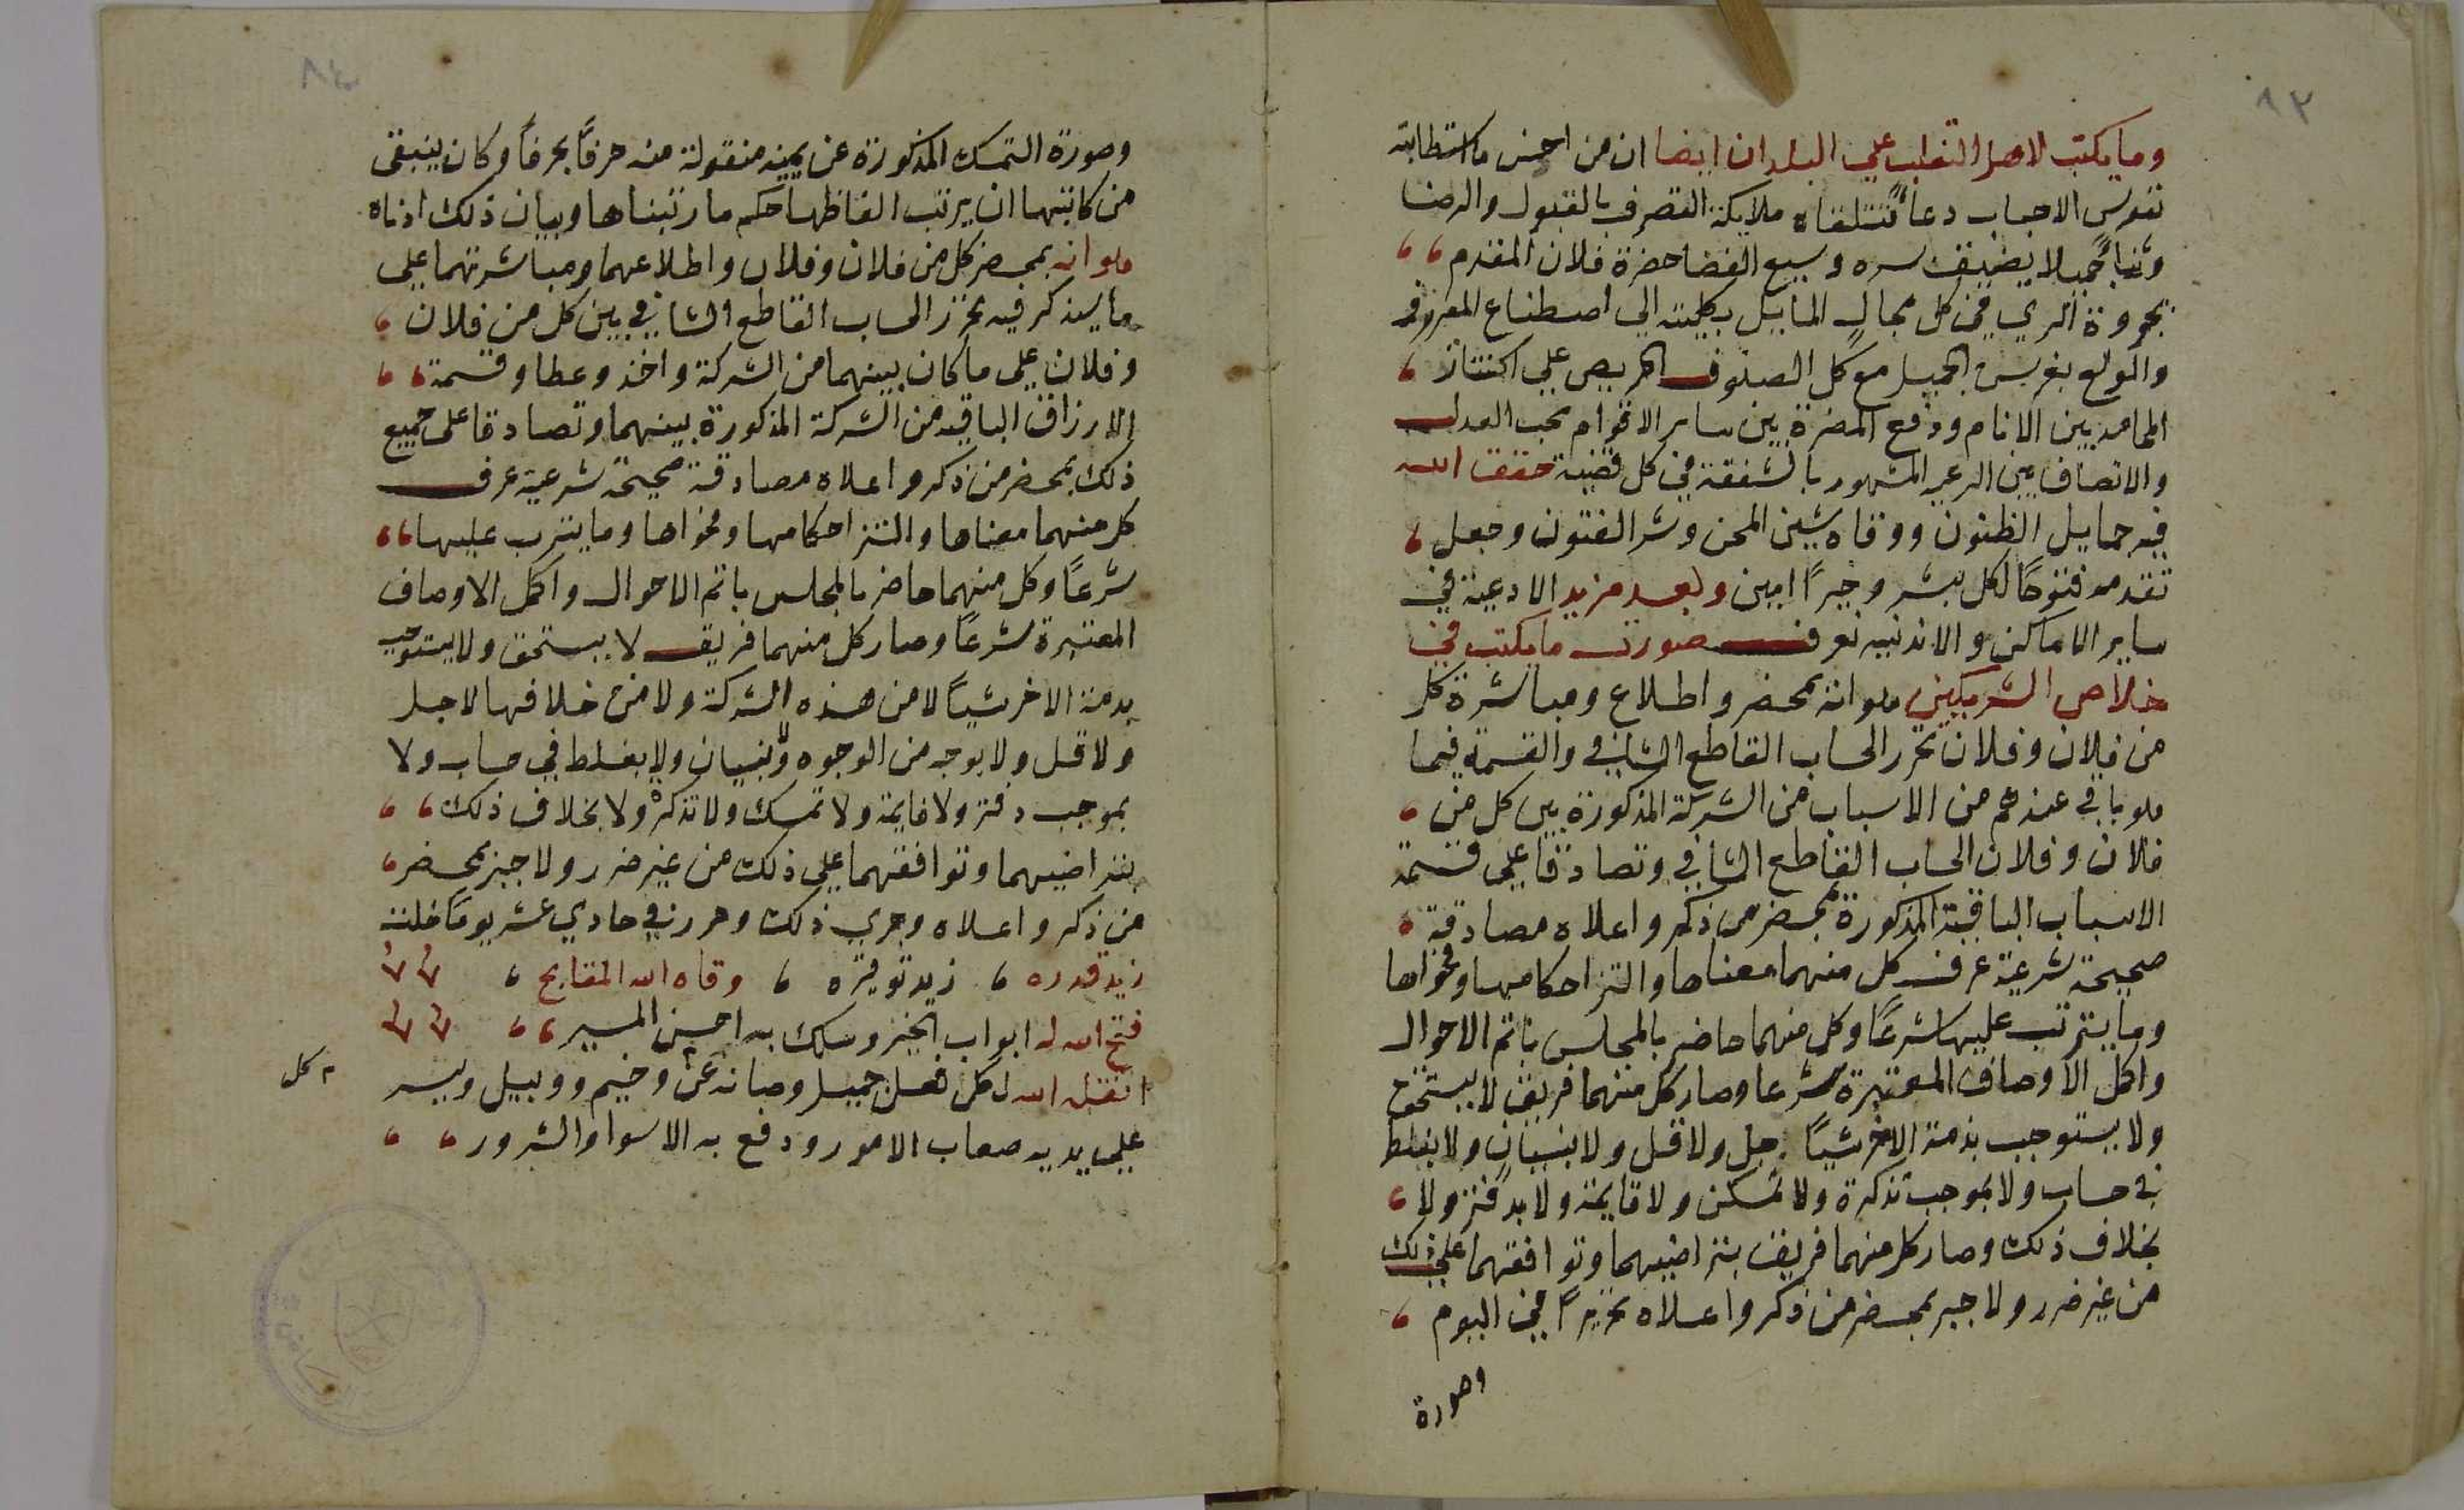 ٨٣
وما يكتب لاهل التغلب علي البلدان ايضا ان من احسن ما استطابته
نفوس الاحباب دعاً تتلقاه ملايكة التصرف بالقبول والرضا
وثناً جميلا يضيق سره وسيع الفضا حضرة فلان المقدم
في كل مجال المايل بكليته الي اصطناع المعروف
والمولع بغرس الجميل مع كل الصنوف الحريص علي اكتناز
المحامد بين الانام ودفع المضرة بين ساير الاقوام بحب العدل
والانصاف بين الرعيه المشهور بالشفقة في كل قضية حقق الله
فيه جمايل الظنون ووقاه شين المحن وشر الفتون وجعل
تقدمه فتوحًا لكل بشر وخيرًا امين وبعد مزيد الادعية في
ساير الاماكن والاندنيه نعرف صورت ما يكتب في
خلاص الشريكين هو انه بمحضر واطلاع ومباشرة كل
من فلان وفلان تحرر الحساب القاطع الشافي والقسمة فيما
هو باقي عندهم من الاسباب من الشركة المذكورة بين كل من
فلان وفلان الحساب القاطع الشافي وتصادقا علي قسمة
الاسباب الباقية المذكورة بمحضر من ذكر واعلاه مصادقة
صحيحة شرعية عرف كل منهما معناها والتزم احكامها وفحواها
وما يترتب عليها شرعًا وكل منهما حاضر بالمجلس باتم الاحوال
واكمل الاوصاف المعتبرة شرعا وصار كل منهما فريق لا يستحق
ولا يستوجب بذمة الاخر شيًا جل ولا قل ولا بنسيان ولا بغلط
في حساب ولا بموجب تذكرة ولا تمسك ولا قايمة ولا بدفتر ولا
بخلاف ذلك وصار كل منهما فريق بتراضيهما وتوافقهما علي ذلك
من غير ضرر ولا جبر بمحضر من ذكر واعلاه تحريرًا في اليوم
وصورة
٨٤
وصورة التمسك المذكورة عن يمينه منقولة منه حرفًا بحرفًا وكان ينبقى
من كاتبها ان يرتب الفاظها حكم ما رتبناها وبيان ذلك ادناه
هو انه بمحضر كل من فلان وفلان واطلاعهما ومباشرتهما علي
ما سيذكر فيه تحرر الحساب القاطع الشافي بين كل من فلان
وفلان علي ما كان بينهما من الشركة واخذ وعطا وقسمة
الارزاق الباقيه من الشركة المذكورة بينهما وتصادقا على جميع
ذلك بمحضر من ذكر واعلاه مصادقة صحيحة شرعية عرف
كل منهما معناها والتزم احكامها وفحواها وما يترتب عليها
شرعًا وكل منهما حاضر بالمجلس باتم الاحوال واكمل الاوصاف
المعتبرة شرعًا وصار كل منهما فريق لا يستحق ولا يستوجب
بذمة الاخر شيًا لا من هذه الشركة ولا من خلافها لا جل
ولا قل ولا بوجه من الوجوه ولا بنسيان ولا بغلط في حساب ولا
بموجب دفتر ولا قايمة ولا تمسك ولا تذكرة ولا بخلاف ذلك
بتراضيهما وتوافقهما علي ذلك من غير ضرر ولا جبر بمحضر
من ذكر واعلاه وجري ذلك وحرر في حادي عشر يومًا خلت
زيد قدره زيد توقيره وقاه الله المقابح
فتح الله له ابواب الخير وسلك به احسن المسير
الله لكل فعل جميل وصانه عن وخيم ووبيل ويسر
كل
علي يديه صعاب الامور ودفع به الاسوا والشرور